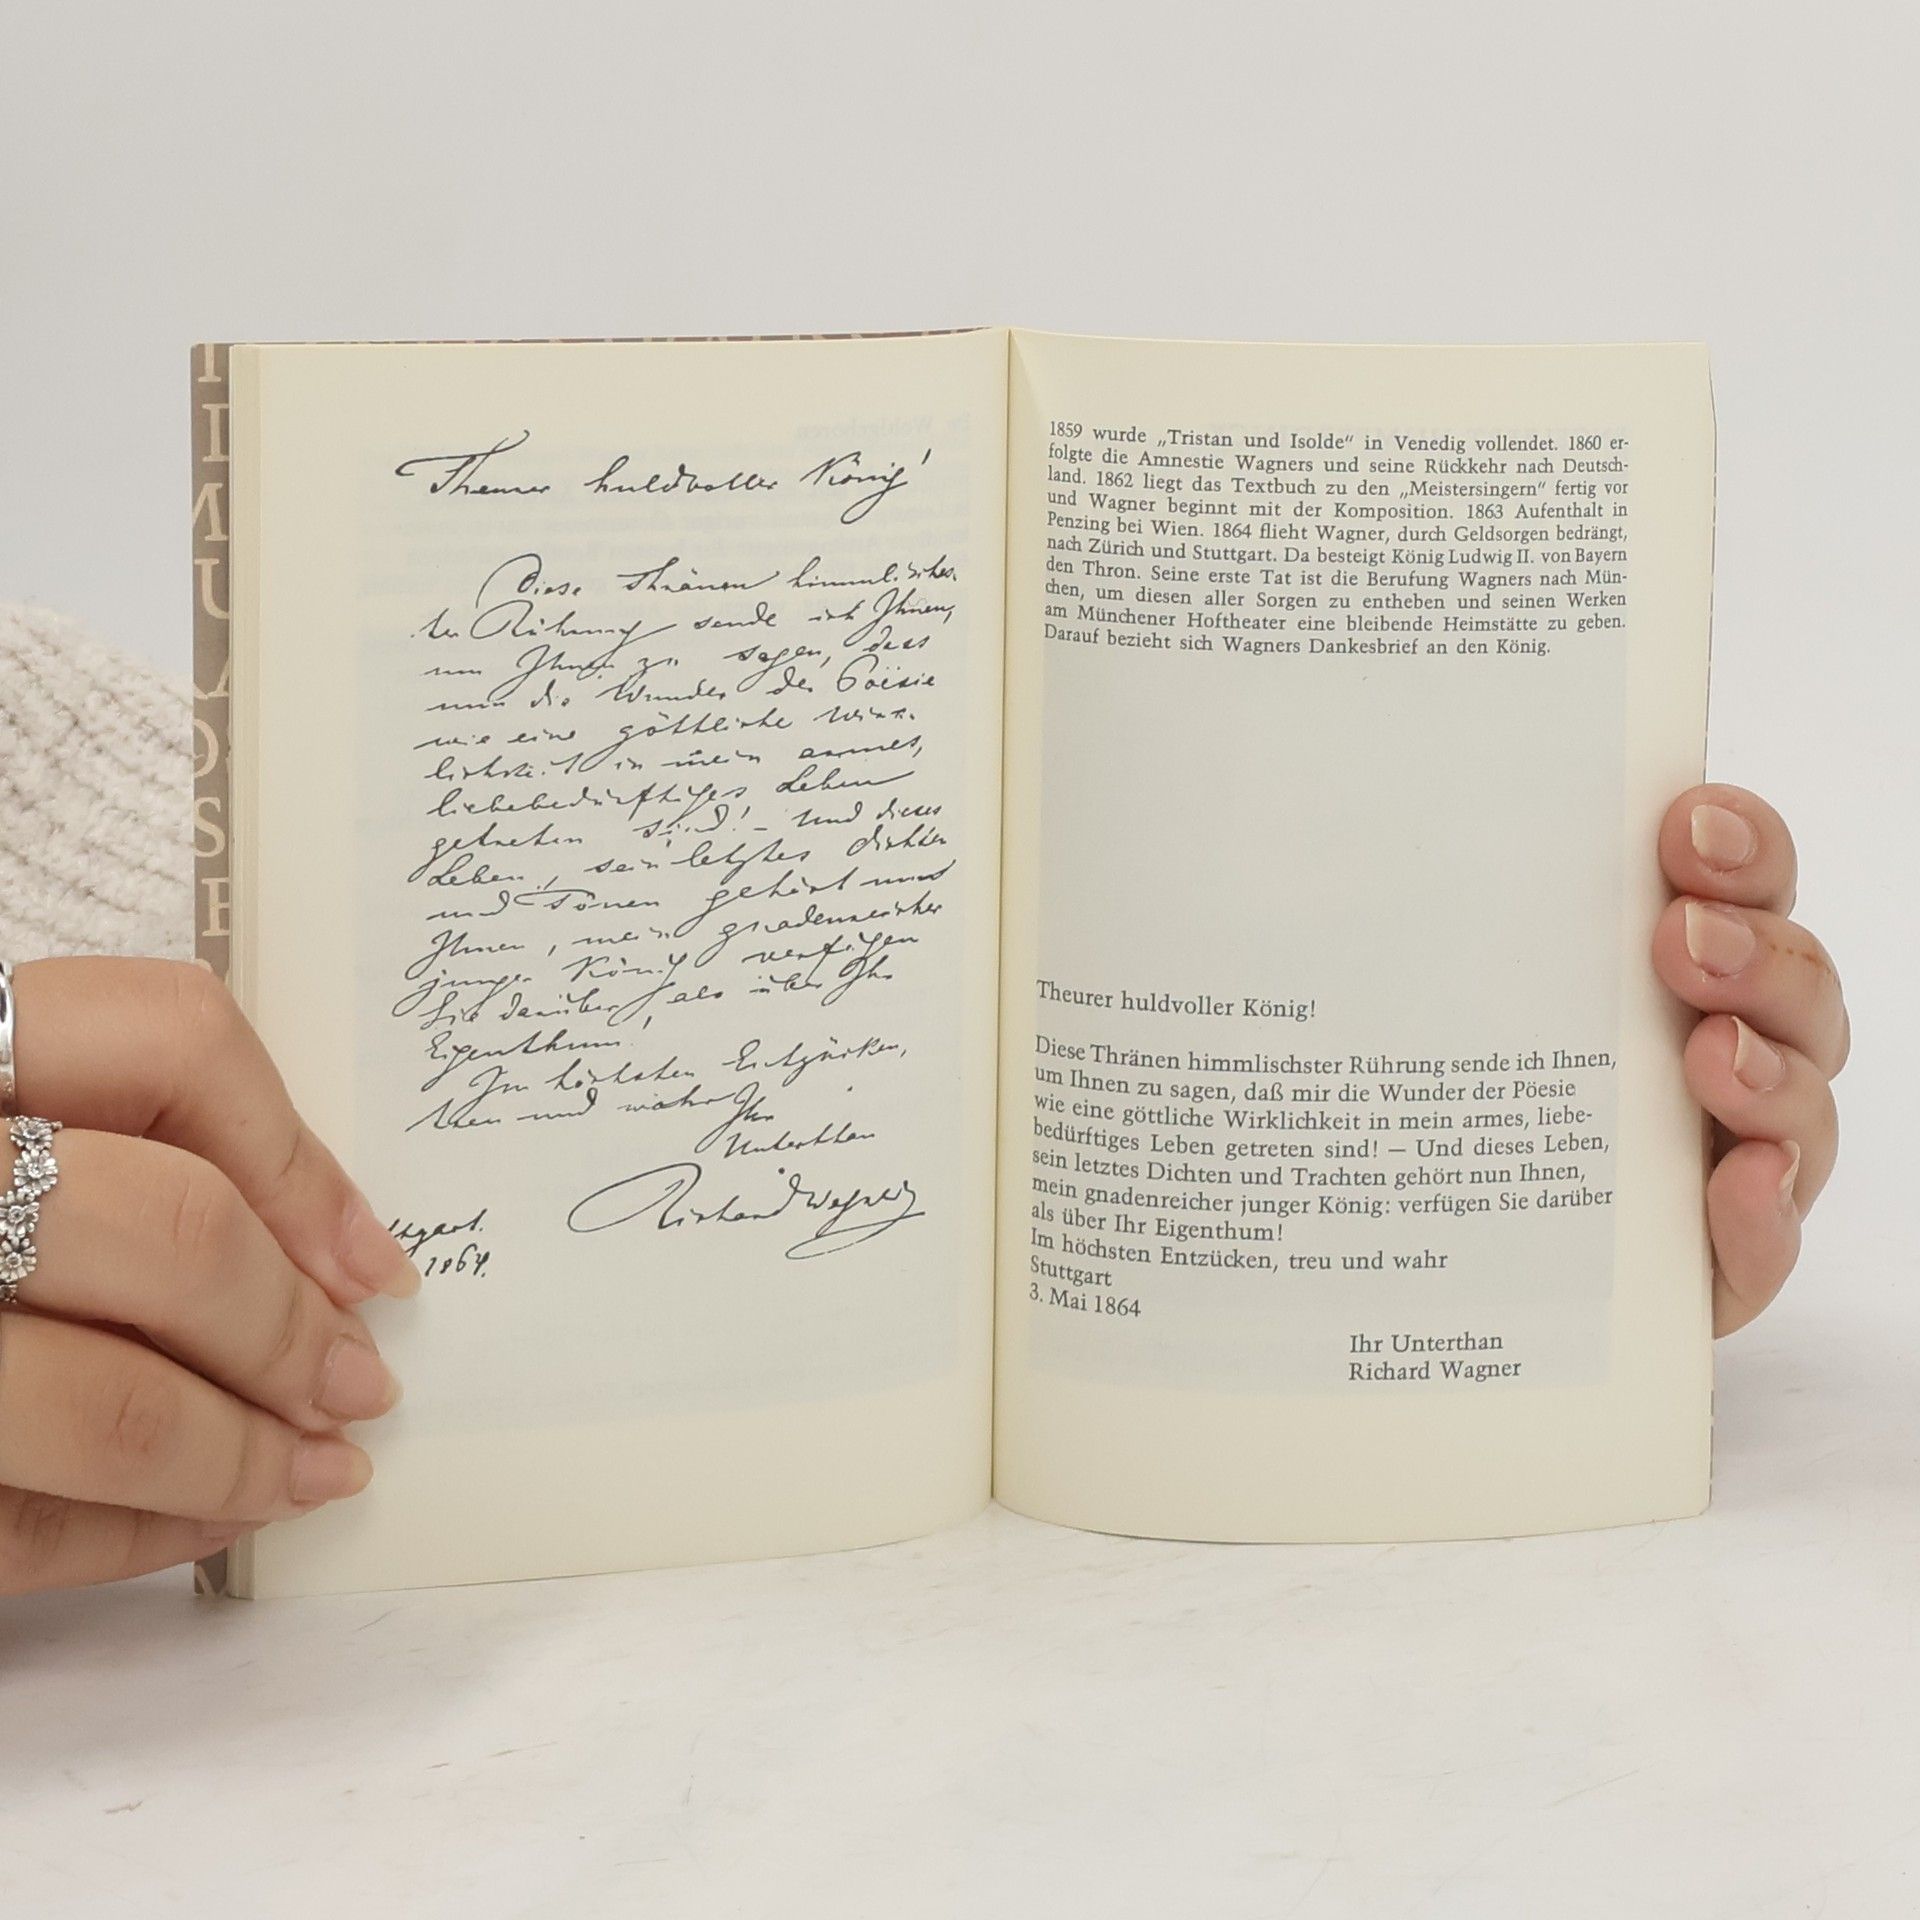 Theurer huldvoller König!
Diese Thränen himmlischs-
ter Rührung sende ich Ihnen,
um Ihnen zu sagen, dass
nun die Wunder der Pöesie
wie eine göttliche Wirk-
lichkeit in mein armes,
liebebedürftiges Leben
getreten sind! – Und dieses
Leben, sein letztes Dichten
und Tönen gehört nun
Ihnen, mein gnadenreicher
junger König verfügen
Sie darüber, als über Ihr
Eigenthum!
Im höchsten Entzücken,
treu und wahr
Ihr
Unterthan
Richard Wagner
1864.
1859 wurde „Tristan und Isolde“ in Venedig vollendet. 1860 er-
folgte die Amnestie Wagners und seine Rückkehr nach Deutsch-
land. 1862 liegt das Textbuch zu den „Meistersingern“ fertig vor
und Wagner beginnt mit der Komposition. 1863 Aufenthalt in
Penzing bei Wien. 1864 flieht Wagner, durch Geldsorgen bedrängt,
nach Zürich und Stuttgart. Da besteigt König Ludwig II. von Bayern
den Thron. Seine erste Tat ist die Berufung Wagners nach Mün-
chen, um diesen aller Sorgen zu entheben und seinen Werken
am Münchener Hoftheater eine bleibende Heimstätte zu geben.
Darauf bezieht sich Wagners Dankesbrief an den König.
Theurer huldvoller König!
Diese Thränen himmlischster Rührung sende ich Ihnen,
um Ihnen zu sagen, daß mir die Wunder der Pöesie
wie eine göttliche Wirklichkeit in mein armes, liebe-
bedürftiges Leben getreten sind! — Und dieses Leben,
sein letztes Dichten und Trachten gehört nun Ihnen,
mein gnadenreicher junger König: verfügen Sie darüber
als über Ihr Eigenthum!
Im höchsten Entzücken, treu und wahr
Stuttgart
3. Mai 1864
Ihr Unterthan
Richard Wagner